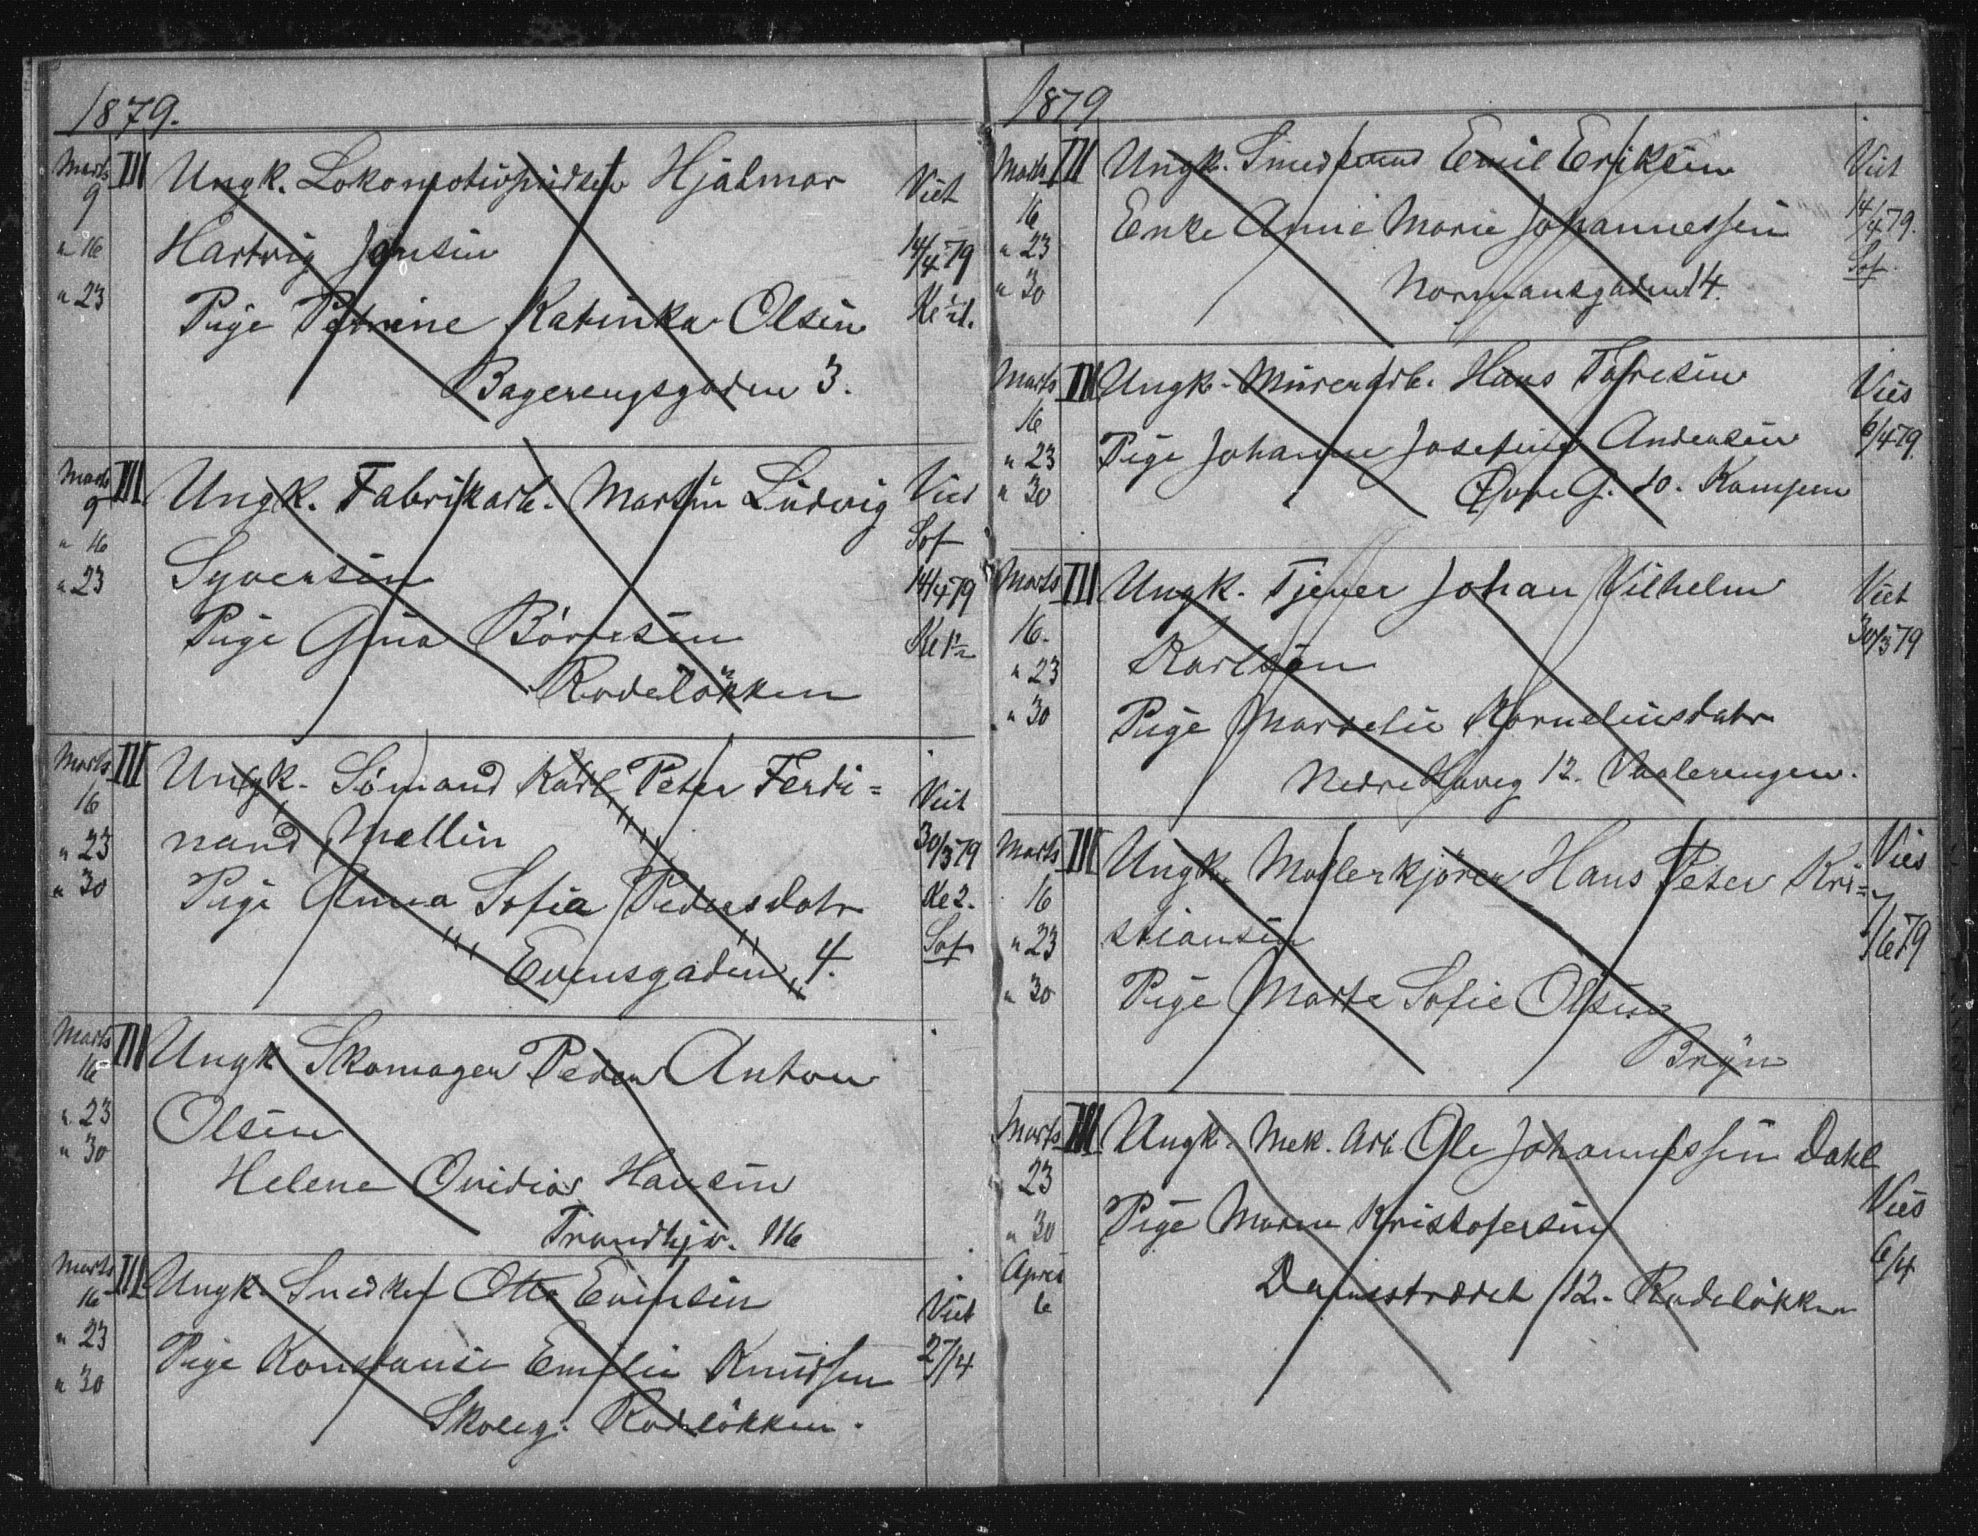 1879.
Marts III Ungk. Lokomotivpudser Hjalmar Viet
9
" 16 Hartvig Jensen 14/4 79
" 23 Pige Petrine Katinka Olsen
Bagerengsgaden 3.
Marts III Ungk. Fabrikarb. Martin Ludvig Viet
9 Sof
" 16 Syversen 14/4 79
" 23
Pige Gina Børresen
Rodeløkken
Marts III Ungk. Sømand Karl Peter Ferdi= Viet
16
" 23 nand Mellin 30/3 79
" 30 Pige Anna Sofia Pedersdatr Ke 2.
" " Evensgaden " 4. Sof
Marts III Ungk Skomager Peder Anton
16
" 23 Olsen
" 30
Helene Ovidia Hansen
Trondhjv. 116
Marts III Ungk. Snedker Otto Evensen Viet
16
" 23 27/4
" 30 Pige Konstanse Emilie Knudsen
Skoleg. Rodeløkken.
1879
Marts III Ungk. Smedsvend Emil Eriksen Viet
16 Enke Anne Marie Johannessen 14/4 79.
" 23 Sof.
" 30 Normansgaden 14.
Marts III Ungk. Murerarb. Hans Toresen Vies
16 6/4 79
" 23 Pige Johanne Josefine Andersen
" 30 Øvre G. 10. Kampen
Marts III Ungk. Tjener Johan Vilhelm Viet
16. 30/3 79
" 23 Karlsen
" 30 Pige Marselie Korneliusdatr
Nedre Haveg 12. Vaalerengen.
Marts III Ungk. Møllerkjører Hans Peter Kri= Vies
16
" 23 stiansen 1/6 79
" 30 Pige Marte Sofie Olsen
Bryn
Marts III Ungk. Mek. Arb. Ole Johannessen Dahl
23 Vies
" 30 Pige Maren Kristofersen 6/4
April
6 Danestrædet 12. Rodeløkken